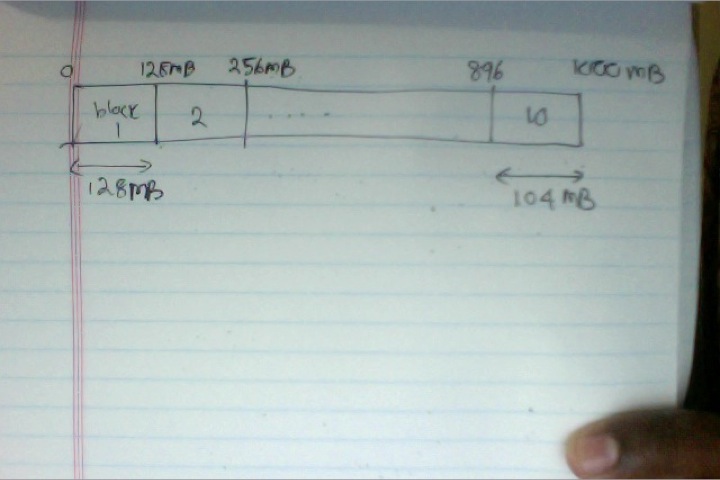 0 128MB 256MB 896 1000 MB
block 1 2 ..... 10
128MB 104 MB